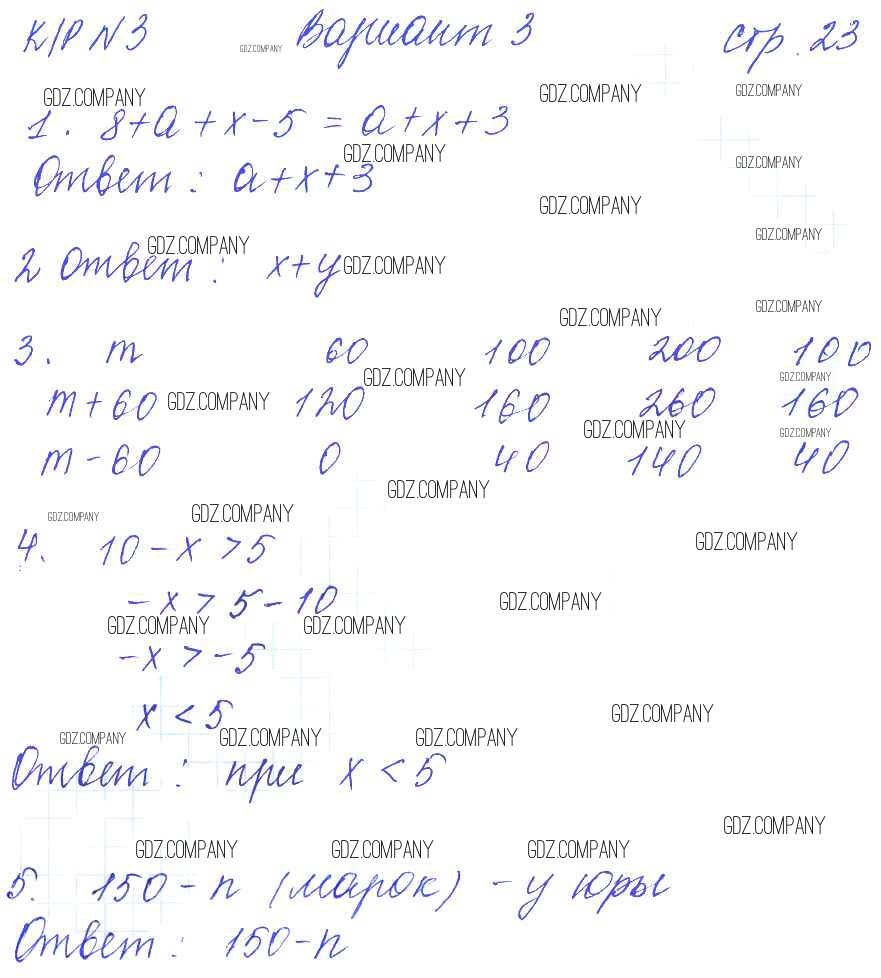 К/Р N3 Вариант 3 стр. 23
GDZ.COMPANY
GDZ.COMPANY GDZ.COMPANY GDZ.COMPANY
1. 8+a+x-5 = a+x+3
GDZ.COMPANY GDZ.COMPANY
Ответ: a+x+3
GDZ.COMPANY
GDZ.COMPANY GDZ.COMPANY
2 Ответ: x+y GDZ.COMPANY
GDZ.COMPANY GDZ.COMPANY
3. m 60 100 200 100
GDZ.COMPANY GDZ.COMPANY
m+60 GDZ.COMPANY 120 160 260 160
GDZ.COMPANY GDZ.COMPANY
m-60 0 40 140 40
GDZ.COMPANY
GDZ.COMPANY GDZ.COMPANY
4. 10-x>5 GDZ.COMPANY
-x>5-10 GDZ.COMPANY
GDZ.COMPANY GDZ.COMPANY
-x>-5
x<5 GDZ.COMPANY
GDZ.COMPANY GDZ.COMPANY GDZ.COMPANY
Ответ: при x<5
GDZ.COMPANY
GDZ.COMPANY GDZ.COMPANY GDZ.COMPANY
5. 150-n (марок) - у Юры
Ответ: 150-n